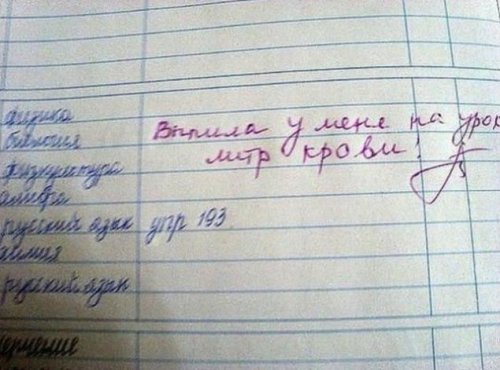 физика
биология
Выпила у мене на урок
физкультура
литр крови!
алгебра
русский язык упр 193.
химия
русский язык
черчение